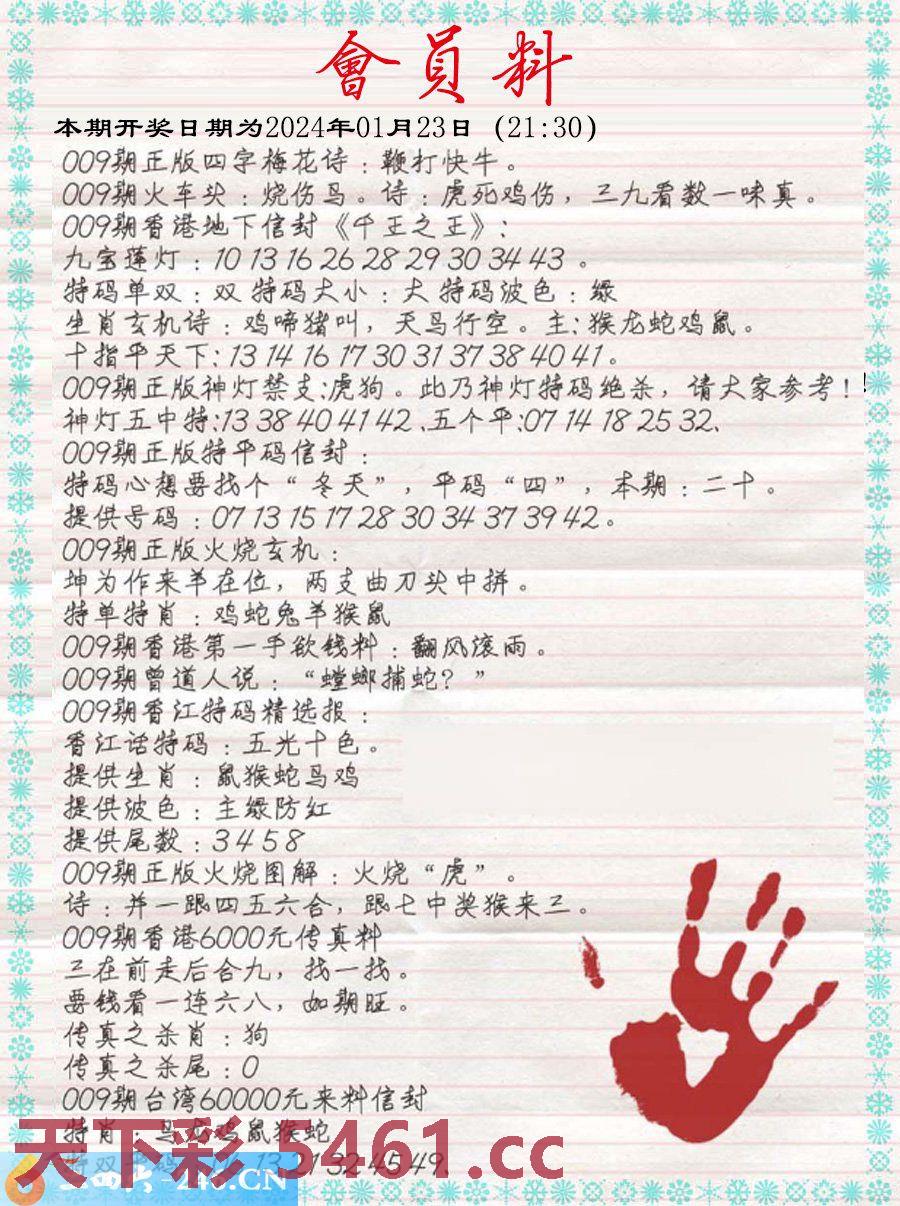 會員料
本期开奖日期为2024年01月23日 (21:30)
009期正版四字梅花诗：鞭打快牛。
009期火车头：烧伤鸟。诗：虎死鸡伤，三九看数一味真。
009期香港地下信封《千王之王》：
九宝莲灯：10 13 16 26 28 29 30 34 43 。
特码单双：双 特码大小：大 特码波色：绿
生肖玄机诗：鸡啼猪叫，天鸟行空。主：猴龙蛇鸡鼠。
十指平天下：13 14 16 17 30 31 37 38 40 41。
009期正版神灯禁支：虎狗。此乃神灯特码绝杀，请大家参考！！
神灯五中特：13 38 40 41 42 、五个平：07 14 18 25 32、
009期正版特平码信封：
特码心想要找个“冬天”，平码“四”，本期：二十。
提供号码：07 13 15 17 28 30 34 37 39 42。
009期正版火烧玄机：
坤为作来羊在位，两支曲刀头中拼。
特单特肖：鸡蛇兔羊猴鼠
009期香港第一手欲钱料：翻风滚雨。
009期曾道人说：“螳螂捕蛇？”
009期香江特码精选报：
香江话特码：五光十色。
提供生肖：鼠猴蛇马鸡
提供波色：主绿防红
提供尾数：3 4 5 8
009期正版火烧图解：火烧“虎”。
诗：并一跟四五六合，跟七中奖猴来三。
009期香港6000元传真料
三在前走后合九，找一找。
要钱看一连六八，如期旺。
传真之杀肖：狗
传真之杀尾：0
009期台湾60000元来料信封
特肖：马龙鸡鼠猴蛇
天下彩-1461.cc
13 21 32 45 49、
-246.CN